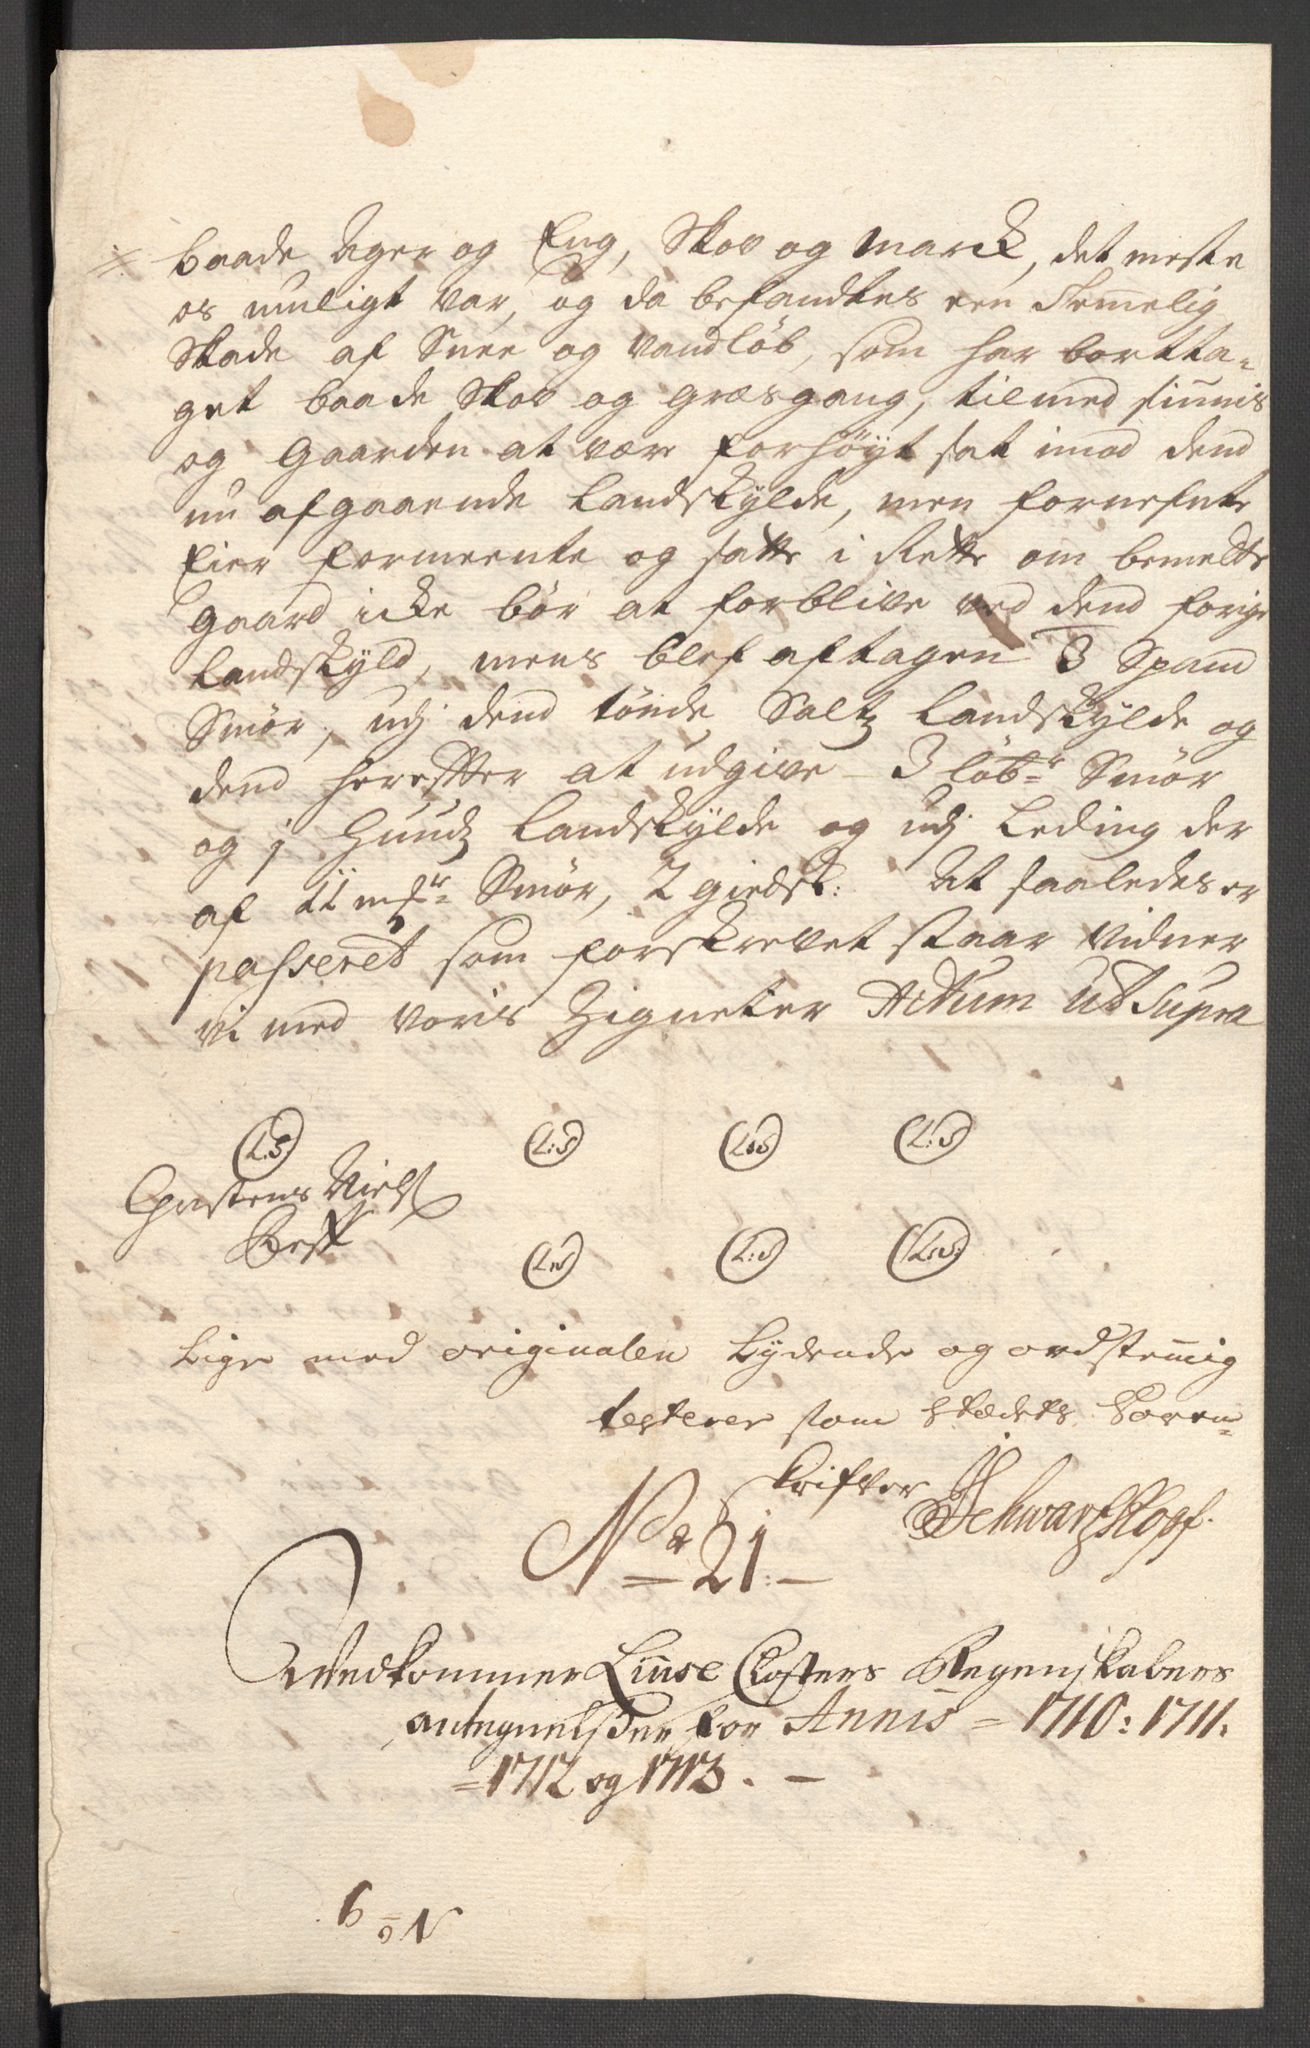 baade Ager og Eng, Skov og Marck, det meste
os muligt var, og da befandtes een Temmelig
Skade af Snee og Vandløb, som har bortta-
get baade Skov og græsgang, tilmed siunis
og Gaarden at være forhøyt sat imod dend
nu afgaaende Landskylde, men fornefnte
Eier formeente og satte i Rette om bemelte
Gaard icke bør at forblive ved dend forige
Landskyld, mens blef aftagen 3 Spand
Smør, udj dend tønde Saltz Landskylde og
dend herefter at udgive 3 løbr Smør
og j Huudz Landskylde og udj Leding der
af 11 mkr Smør, 2 giedsk: At saaledes er
passeret som forskrevet staar Vidner
vi med voris Zigneter Actum Ut Supra
(L.S) (L:S) (L:S) (L:S)
Christens Niels
(L:S) (L:S) (L:S)
Lige med originalen Lydende og ordstemig
testerer som Stædets Soren-
skrifver Schwartzkopf.
No 21.
Vedkommer Liuse Closters Regenskabers
antegnelser for Annis 1710: 1711.
1712 og 1713.
No 6